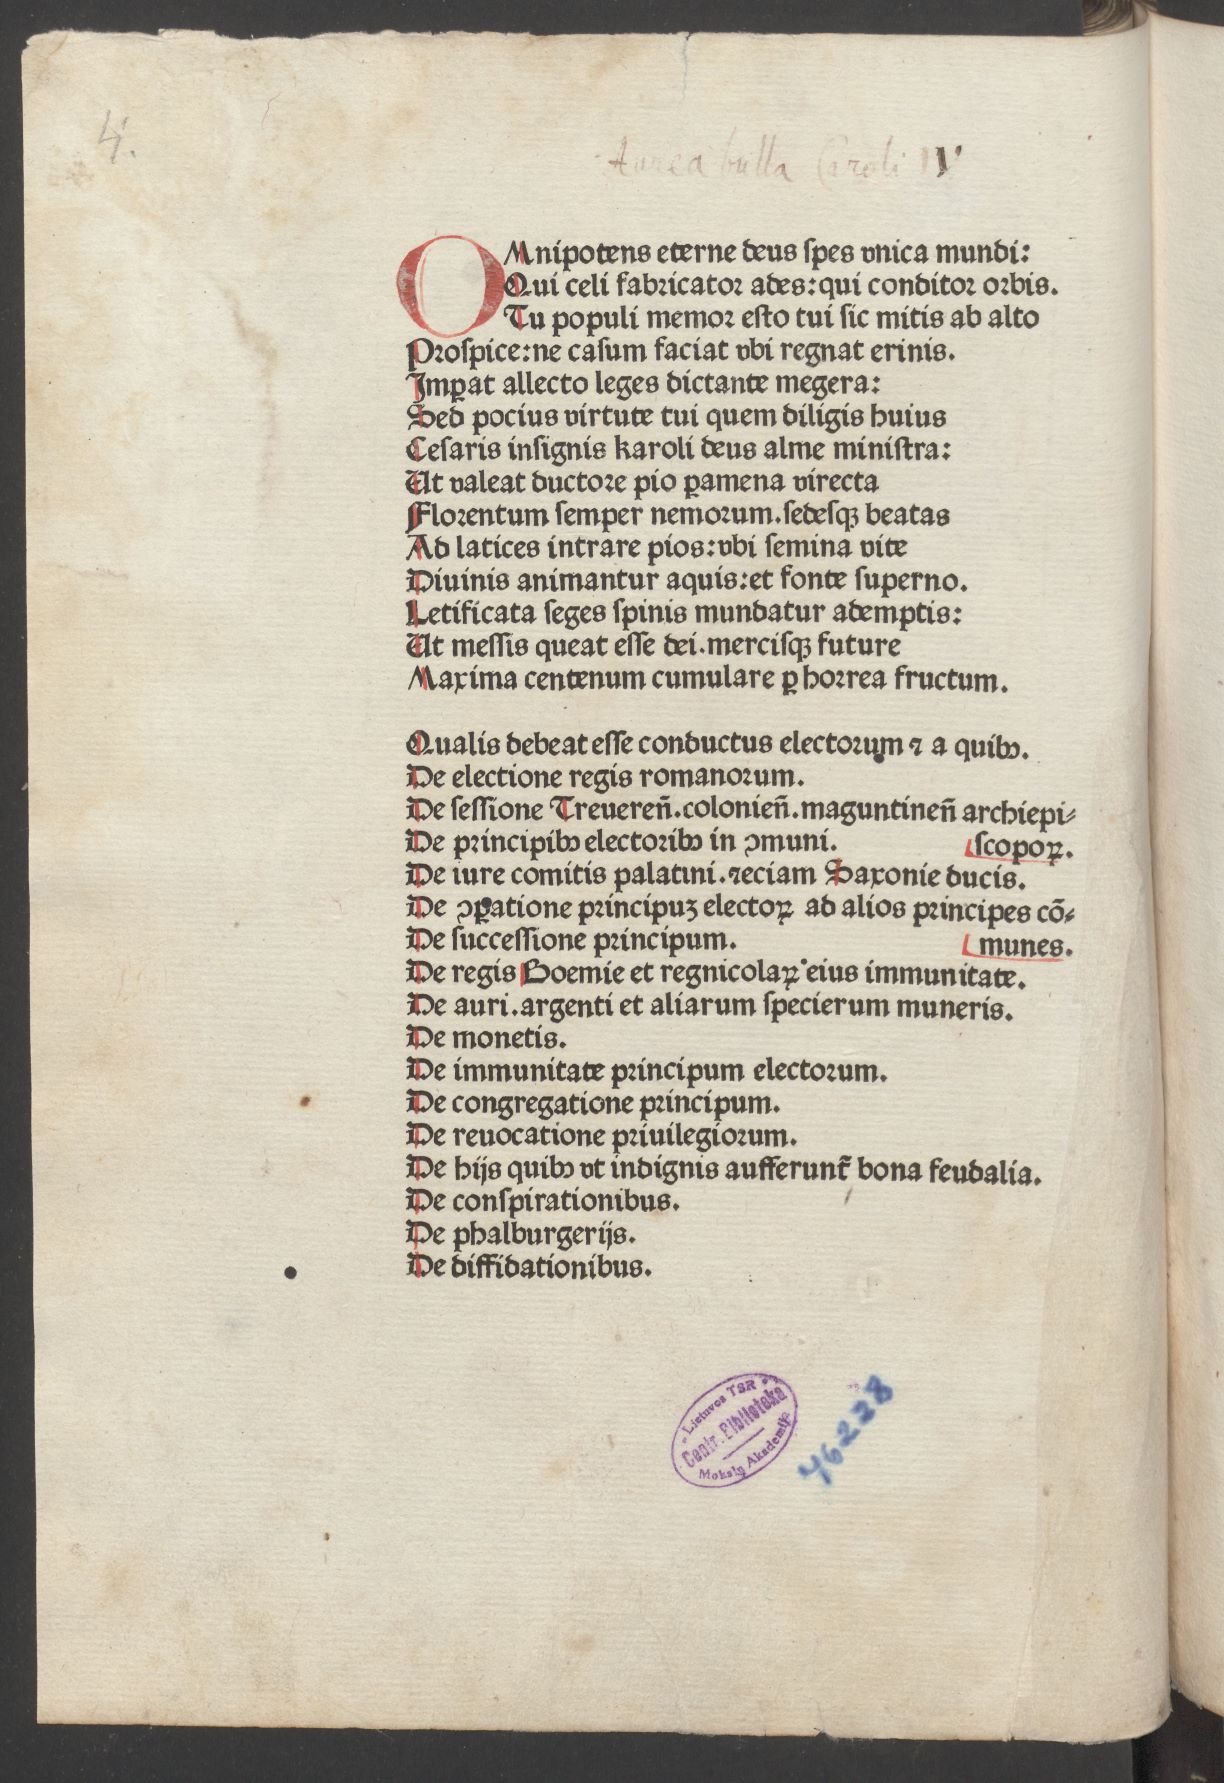 4.
Aurea bulla Caroli IV
OMnipotens eterne deus ſpes vnica mundi:
Qui celi fabricatoꝛ ades: qui conditoꝛ oꝛbis.
Tu populi memoꝛ eſto tui ſic mitis ab alto
Pꝛoſpice: ne caſum faciat vbi regnat erinis.
Imꝑat allecto leges dictante megera:
Sed pocius virtute tui quem diligis huius
Ceſaris inſignis karoli deus alme miniſtra:
Ut valeat ductoꝛe pio ꝑamena virecta
Floꝛentum ſemper nemoꝛum. ſedeſqꝫ beatas
Ad latices intrare pios: vbi ſemina vite
Diuinis animantur aquis: et fonte ſuperno.
Letificata ſeges ſpinis mundatur ademptis:
Ut meſſis queat eſſe dei. merciſqꝫ future
Maxima centenum cumulare ꝑ hoꝛrea fructum.
Qualis debeat eſſe conductus electoꝛum ⁊ a quibꝰ.
De electione regis romanoꝛum.
De ſeſſione Treuereñ. colonieñ. maguntineñ archiepi⸗
De pꝛincipibꝰ electoꝛibꝰ in ꝯmuni. ſcopoꝝ.
De iure comitis palatini. ⁊eciam Saxonie ducis.
De ꝯꝑatione pꝛincipuꝫ electoꝝ ad alios pꝛincipes cō⸗
De ſucceſſione pꝛincipum. munes.
De regis Boemie et regnicolaꝝ eius immunitate.
De auri. argenti et aliarum ſpecierum muneris.
De monetis.
De immunitate pꝛincipum electoꝛum.
De congregatione pꝛincipum.
De reuocatione pꝛiuilegioꝛum.
De hijs quibꝰ vt indignis aufferunt̃ bona feudalia.
De conſpirationibus.
De phalburgerijs.
De diffidationibus.
Lietuvos TSR
Centr. Biblioteka
Mokslų Akademija
46238